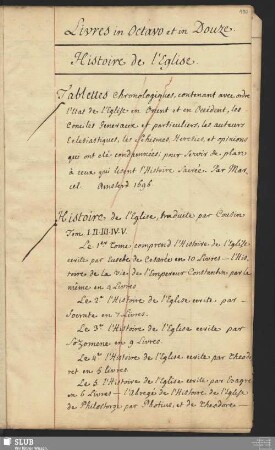 Livres in Octavo et in Douze
Histoire de l'Eglise.
Tablettes Chronologiques, contenant avec ordre
l'Etat de l'Eglise en Orient et en Occident, les
Conciles Generaux et particuliers, les auteurs
Eclesiastiques, les Schismes, Heresies, et opinions
qui ont eté condamnées. pour servir de plan
à ceux qui lisent l'Histoire Sacrée. Par Mar
cel. Amsterd 1696
Histoire de l'Eglise, traduite par Cousin
Tom I. II. III. IV. V.
Le 1er Tome comprend l'Histoire de l'Eglise
ecrite par Eusebe de Cesarée en 10 Livres - l'His
toire de la vie de l'Empereur Constantin par le
même en 4 Livres
Le 2e l'Histoire de l'Eglise ecrite par
Socrate en 7 Livres.
Le 3e l'Histoire de l'Eglise ecrite par
Sozomene en 9 Livres.
Le 4e l'Histoire de l'Eglise ecrite par Theodo
ret en 5 livres
Le 5 l'Histoire de l'Eglise ecrite par Evagre
en 6 Livres - l'abregé de l'Histoire de l'Eglise
de Philostorge par Photius, et de Theodore
SLUB
Wir führen Wissen.